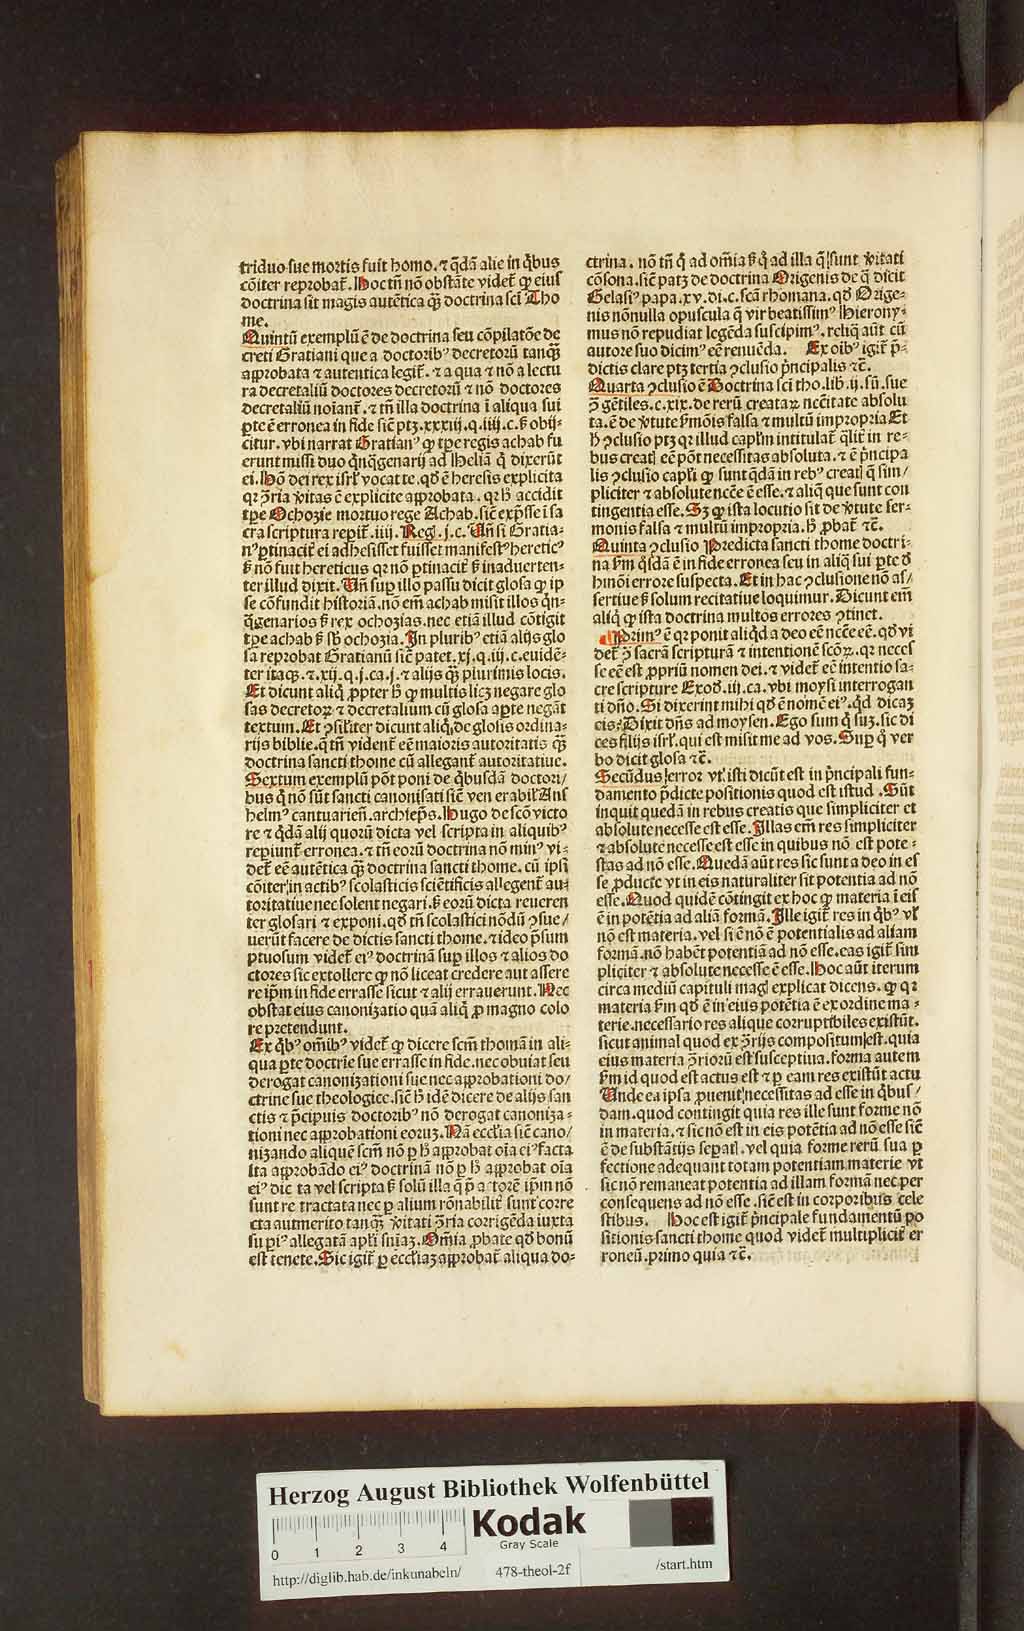 triduo sue mortis fuit homo. ⁊ q̄dā alie in q̇bus
cōiter reprobat᷑. Hoc tn̄ nō obstāte videt᷑ ꝙ eiuſ
doctrina sit magis autētica q̄ꝫ doctrina sci Tho
me.
Quintū exemplū ē de doctrina seu cōpilatōe de
creti Gratiani que a doctoribꝰ decretorū tanq̄ꝫ
approbata ⁊ autentica legit᷑. ⁊ a qua ⁊ nō a lectu
ra decretaliū doctores decretorū ⁊ nō doctores
decretaliū noīant᷑. ⁊ tn̄ illa doctrina ī aliqua sui
ꝑte ē erronea in fide sic̄ ptꝫ. xxxiij. q. iiij. c. ß obij-
citur. vbi narrat Gratianꝰ ꝙ tꝑe regis achab fu
erunt missi duo q̇nq̄genarij ad Heliā q̇ dixerūt
ei. Hō dei rex isrl̄ vocat te. qd̄ ē heresis explicita
qꝛ ꝯ̄ria v̄itas ē explicite approbata. qꝛ h̄ accidit
tꝑe Ochozie mortuo rege Achab. sic̄ exp̄sse ī sa
cra scriptura reperit᷑. iiij. Reg. j. c. Vn̄ si Gratia-
nꝰ ꝑtinacit᷑ ei adhesisset fuisset manifestꝰ hereticꝰ
ß nō fuit hereticus qꝛ nō ꝑtinacit᷑ ß inaduerten-
ter illud dixit. Vn̄ suꝑ illo passu dicit glosa ꝙ ip
se cōfundit historiā. nō em̄ achab misit illos q̇n-
q̄genarios ß rex ochozias. nec etiā illud cōtigit
tꝑe achab ß sb̄ ochozia. In pluribꝰ etiā alijs glo
sa reprobat Gratianū sic̄ patet. xj. q. iij. c. euidē-
ter itaqꝫ. ⁊. xij. q. j. ca. j. ⁊ alijs q̄ꝫ plurimis locis.
Et dicunt aliq̇ ꝓpter h̄ ꝙ multis licꝫ negare glo
sas decretoꝝ ⁊ decretalium cū glosa aꝑte negāt
textum. Et ꝯsil̄iter dicunt aliq̇ de glosis ordina-
rijs biblie. q̄ tn̄ vident᷑ eē maioris autoritatis q̄ꝫ
doctrina sancti thome cū allegant᷑ autoritatiue.
Sextum exemplū pōt poni de q̇busdā doctori/
bus q̇ nō sūt sancti canonisati sic̄ venerabil᷑ Ans
helmꝰ cantuarien̄. archieps̄. Hugo de scō victo
re ⁊ q̇dā alij quorū dicta vel scripta in aliquibꝰ
reꝑiunt᷑ erronea. ⁊ tn̄ eorū doctrina nō minꝰ vi-
det᷑ eē autētica q̄ꝫ doctrina sancti thome. cū ipsi
cōiter in actibꝰ scolasticis sciētificis allegent᷑ au-
toritatiue nec solent negari. ß eorū dicta reueren
ter glosari ⁊ exponi. qd̄ tn̄ scolastici nōdū ꝯsue/
uerūt facere de dictis sancti thome. ⁊ ideo p̄sum
ptuosum videt᷑ eiꝰ doctrinā suꝑ illos ⁊ alios do
ctores sic extollere ꝙ nō liceat credere aut assere
re ip̄m in fide errasse sicut ⁊ alij errauerunt. Nec
obstat eius canonizatio quā aliq̇ ꝓ magno colo
re pretendunt.
Ex q̇bꝰ om̄ibꝰ videt᷑ ꝙ dicere scm̄ thomā in ali-
qua ꝑte doctrīe sue errasse in fide. nec obuiat seu
derogat canonizationi sue nec approbationi do/
ctrine sue theologice. sic̄ h̄ idē dicere de alijs san
ctis ⁊ p̄cipuis doctoribꝰ nō derogat canoniza-
tioni nec approbationi eoruꝫ. Nā ecclīa sic̄ cano/
nizando aliquē scm̄ nō ꝑ h̄ approbat oīa eiꝰ facta
ita approbādo eiꝰ doctrinā nō ꝑ h̄ approbat oīa
eiꝰ dicta vel scripta ß solū illa q̄ p̄ actorē ip̄m nō
sunt retractata nec ꝑ alium rōnabilit᷑ sunt corre
cta aut merito tanq̄ꝫ v̄itati ꝯ̄ria corrigēda iuxta
suꝑiꝰ allegatā apl̄i sniaꝫ. Om̄ia ꝓbate qd̄ bonū
est tenete. Sic igit᷑ ꝑ eccl̄iaꝫ approbat᷑ aliqua do-
ctrina. nō tn̄ q̄ ad om̄ia ß q̄ ad illa q̄ sunt v̄itati
cōsona. sic̄ patꝫ de doctrina Origenis de q̄ dicit
Gelasiꝰ papa. xv. di. c. scā rhomana. qd̄ Orige-
nis nōnulla opuscula q̄ vir beatissimꝰ Hierony-
mus nō repudiat legēda suscipimꝰ. reliq̄ aūt cū
autore suo dicimꝰ eē renuēda. Ex oibꝰ igit᷑ p̄-
dictis clare ptꝫ tertia ꝯclusio p̄ncipalis ⁊c̄.
Quarta ꝯclusio ē Doctrina sci tho. lib. ij. sū. sue
ꝯ̄ gētiles. c. xix. de rerū creataꝝ nc̄citate absolu
ta. ē de v̄tute ß̄mōis falsa ⁊ multū impropria Et
h̄ ꝯclusio ptꝫ qꝛ illud cap̄lm intitulat᷑ q̄lit᷑ in re-
bus creatꝭ eē pōt necessitas absoluta. ⁊ ē p̄ncipa
lis ꝯclusio capl̄i ꝙ sunt q̄dā in rebꝰ creatꝭ q̄ sim/
pliciter ⁊ absolute nc̄ce ē esse. ⁊ aliq̄ que sunt con
tingentia esse. Sꝫ ꝙ ista locutio sit de v̄tute ser-
monis falsa ⁊ multū impropria. h̄ ꝓbat᷑ ⁊c̄.
Quinta ꝯclusio Predicta sancti thome doctri-
na ßm q̇sdā ē in fide erronea seu in aliq̄ sui ꝑte d̄
hmōi errore suspecta. Et in hac ꝯclusione nō as/
sertiue ß solum recitatiue loquimur. Dicunt em̄
aliq̇ ꝙ ista doctrina multos errores ꝯtinet.
Primꝰ ē qꝛ ponit aliq̇d a deo eē nc̄ce eē. qd̄ vi
det᷑ ꝯ̄ sacrā scripturā ⁊ intentionē scōꝝ. qꝛ neces
se eē est ꝓpriū nomen dei. ⁊ videt᷑ eē intentio sa-
cre scripture Exod̄. iij. ca. vbi moysi interrogan
ti dn̄o. Si dixerint mihi qd̄ ē nomē eiꝰ. q̇d dicaꝫ
eis: Dixit dn̄s ad moysen. Ego sum q̇ suꝫ. sic di
ces filijs isrl̄. qui est misit me ad vos. Suꝑ q̇ ver
bo dicit glosa ⁊c̄.
Secūdus error vt isti dicūt est in p̄ncipali fun-
damento p̄dicte positionis quod est istud. Sūt
inquit quedā in rebus creatis que simpliciter et
absolute necesse est esse. Illas em̄ res simpliciter
⁊ absolute necesse est esse in quibus nō est pote-
stas ad nō esse. Quedā aūt res sic sunt a deo in es
se ꝓducte vt in eis naturaliter sit potentia ad nō
esse. Quod quidē cōtingit ex hoc ꝙ materia ī eis
ē in potētia ad aliā formā. Ille igit᷑ res in q̇bꝰ vl̄
nō est materia. vel si ē nō ē potentialis ad aliam
formā. nō habēt potentiā ad nō esse. eas igit᷑ sim
pliciter ⁊ absolute necesse ē esse. Hoc aūt iterum
circa mediū capituli magꝭ explicat dicens. ꝙ qꝛ
materia ßm qd̄ ē in eius potētia ē ex ordine ma-
terie. necessario res alique corruptibiles existūt.
sicut animal quod ex ꝯ̄rijs compositum est. quia
eius materia ꝯ̄riorū est susceptiua. forma autem
ßm id quod est actus est ⁊ ꝑ eam res existūt actu
Vnde ea ipsa ꝓuenit necessitas ad esse in q̇bus/
dam. quod contingit quia res ille sunt forme nō
in materia. ⁊ sic nō est in eis potētia ad nō esse sic̄
ē de substātijs seꝑatꝭ. vel quia forme rerū sua ꝑ
fectione adequant totam potentiam materie vt
sic nō remaneat potentia ad illam formā nec per
consequens ad nō esse. sic̄ est in corporibus cele
stibus. Hoc est igit᷑ p̄ncipale fundamentū po
sitionis sancti thome quod videt᷑ multiplicit᷑ er
roneū. primo quia ⁊c̄.
Herzog August Bibliothek Wolfenbüttel
Kodak
Gray Scale
0 1 2 3 4
http://diglib.hab.de/inkunabeln/ 478-theol-2f /start.htm